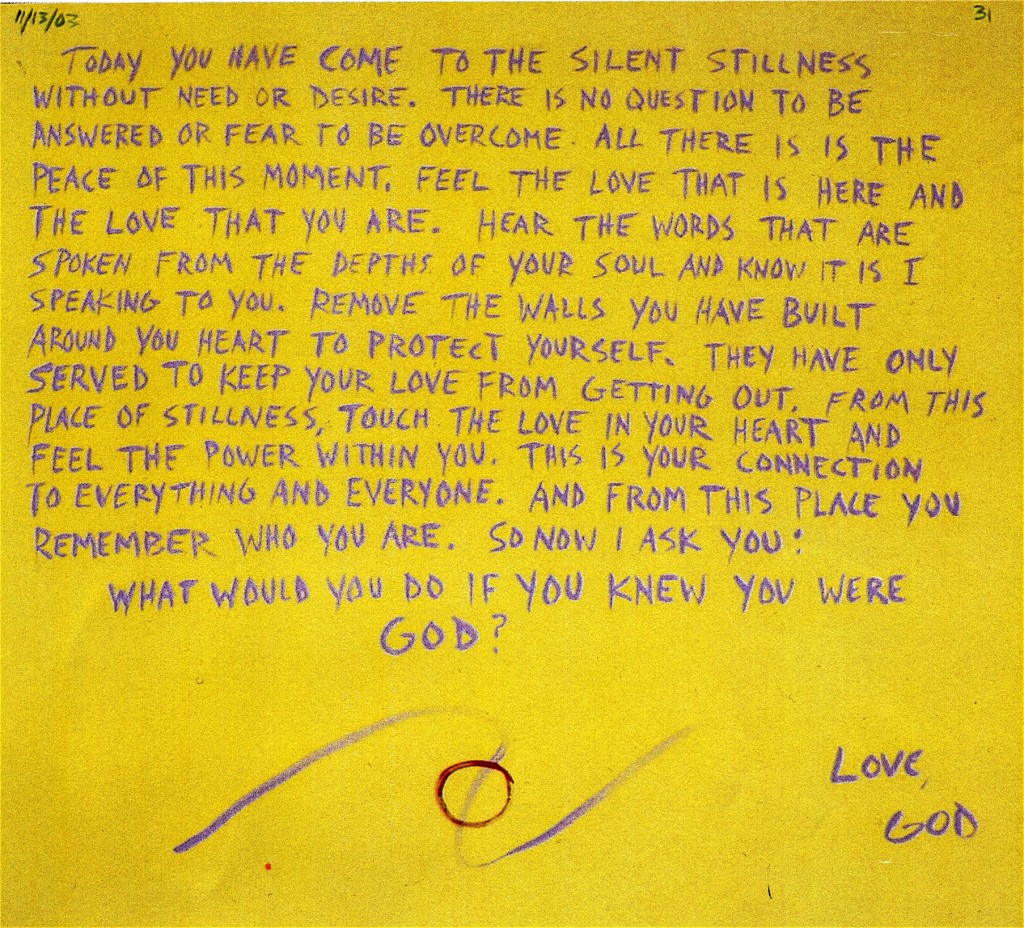 11/13/03 31
TODAY YOU HAVE COME TO THE SILENT STILLNESS
WITHOUT NEED OR DESIRE. THERE IS NO QUESTION TO BE
ANSWERED OR FEAR TO BE OVERCOME. ALL THERE IS IS THE
PEACE OF THIS MOMENT. FEEL THE LOVE THAT IS HERE AND
THE LOVE THAT YOU ARE. HEAR THE WORDS THAT ARE
SPOKEN FROM THE DEPTHS OF YOUR SOUL AND KNOW IT IS I
SPEAKING TO YOU. REMOVE THE WALLS YOU HAVE BUILT
AROUND YOU HEART TO PROTECT YOURSELF. THEY HAVE ONLY
SERVED TO KEEP YOUR LOVE FROM GETTING OUT. FROM THIS
PLACE OF STILLNESS, TOUCH THE LOVE IN YOUR HEART AND
FEEL THE POWER WITHIN YOU. THIS IS YOUR CONNECTION
TO EVERYTHING AND EVERYONE. AND FROM THIS PLACE YOU
REMEMBER WHO YOU ARE. SO NOW I ASK YOU:
WHAT WOULD YOU DO IF YOU KNEW YOU WERE
GOD?
LOVE,
GOD